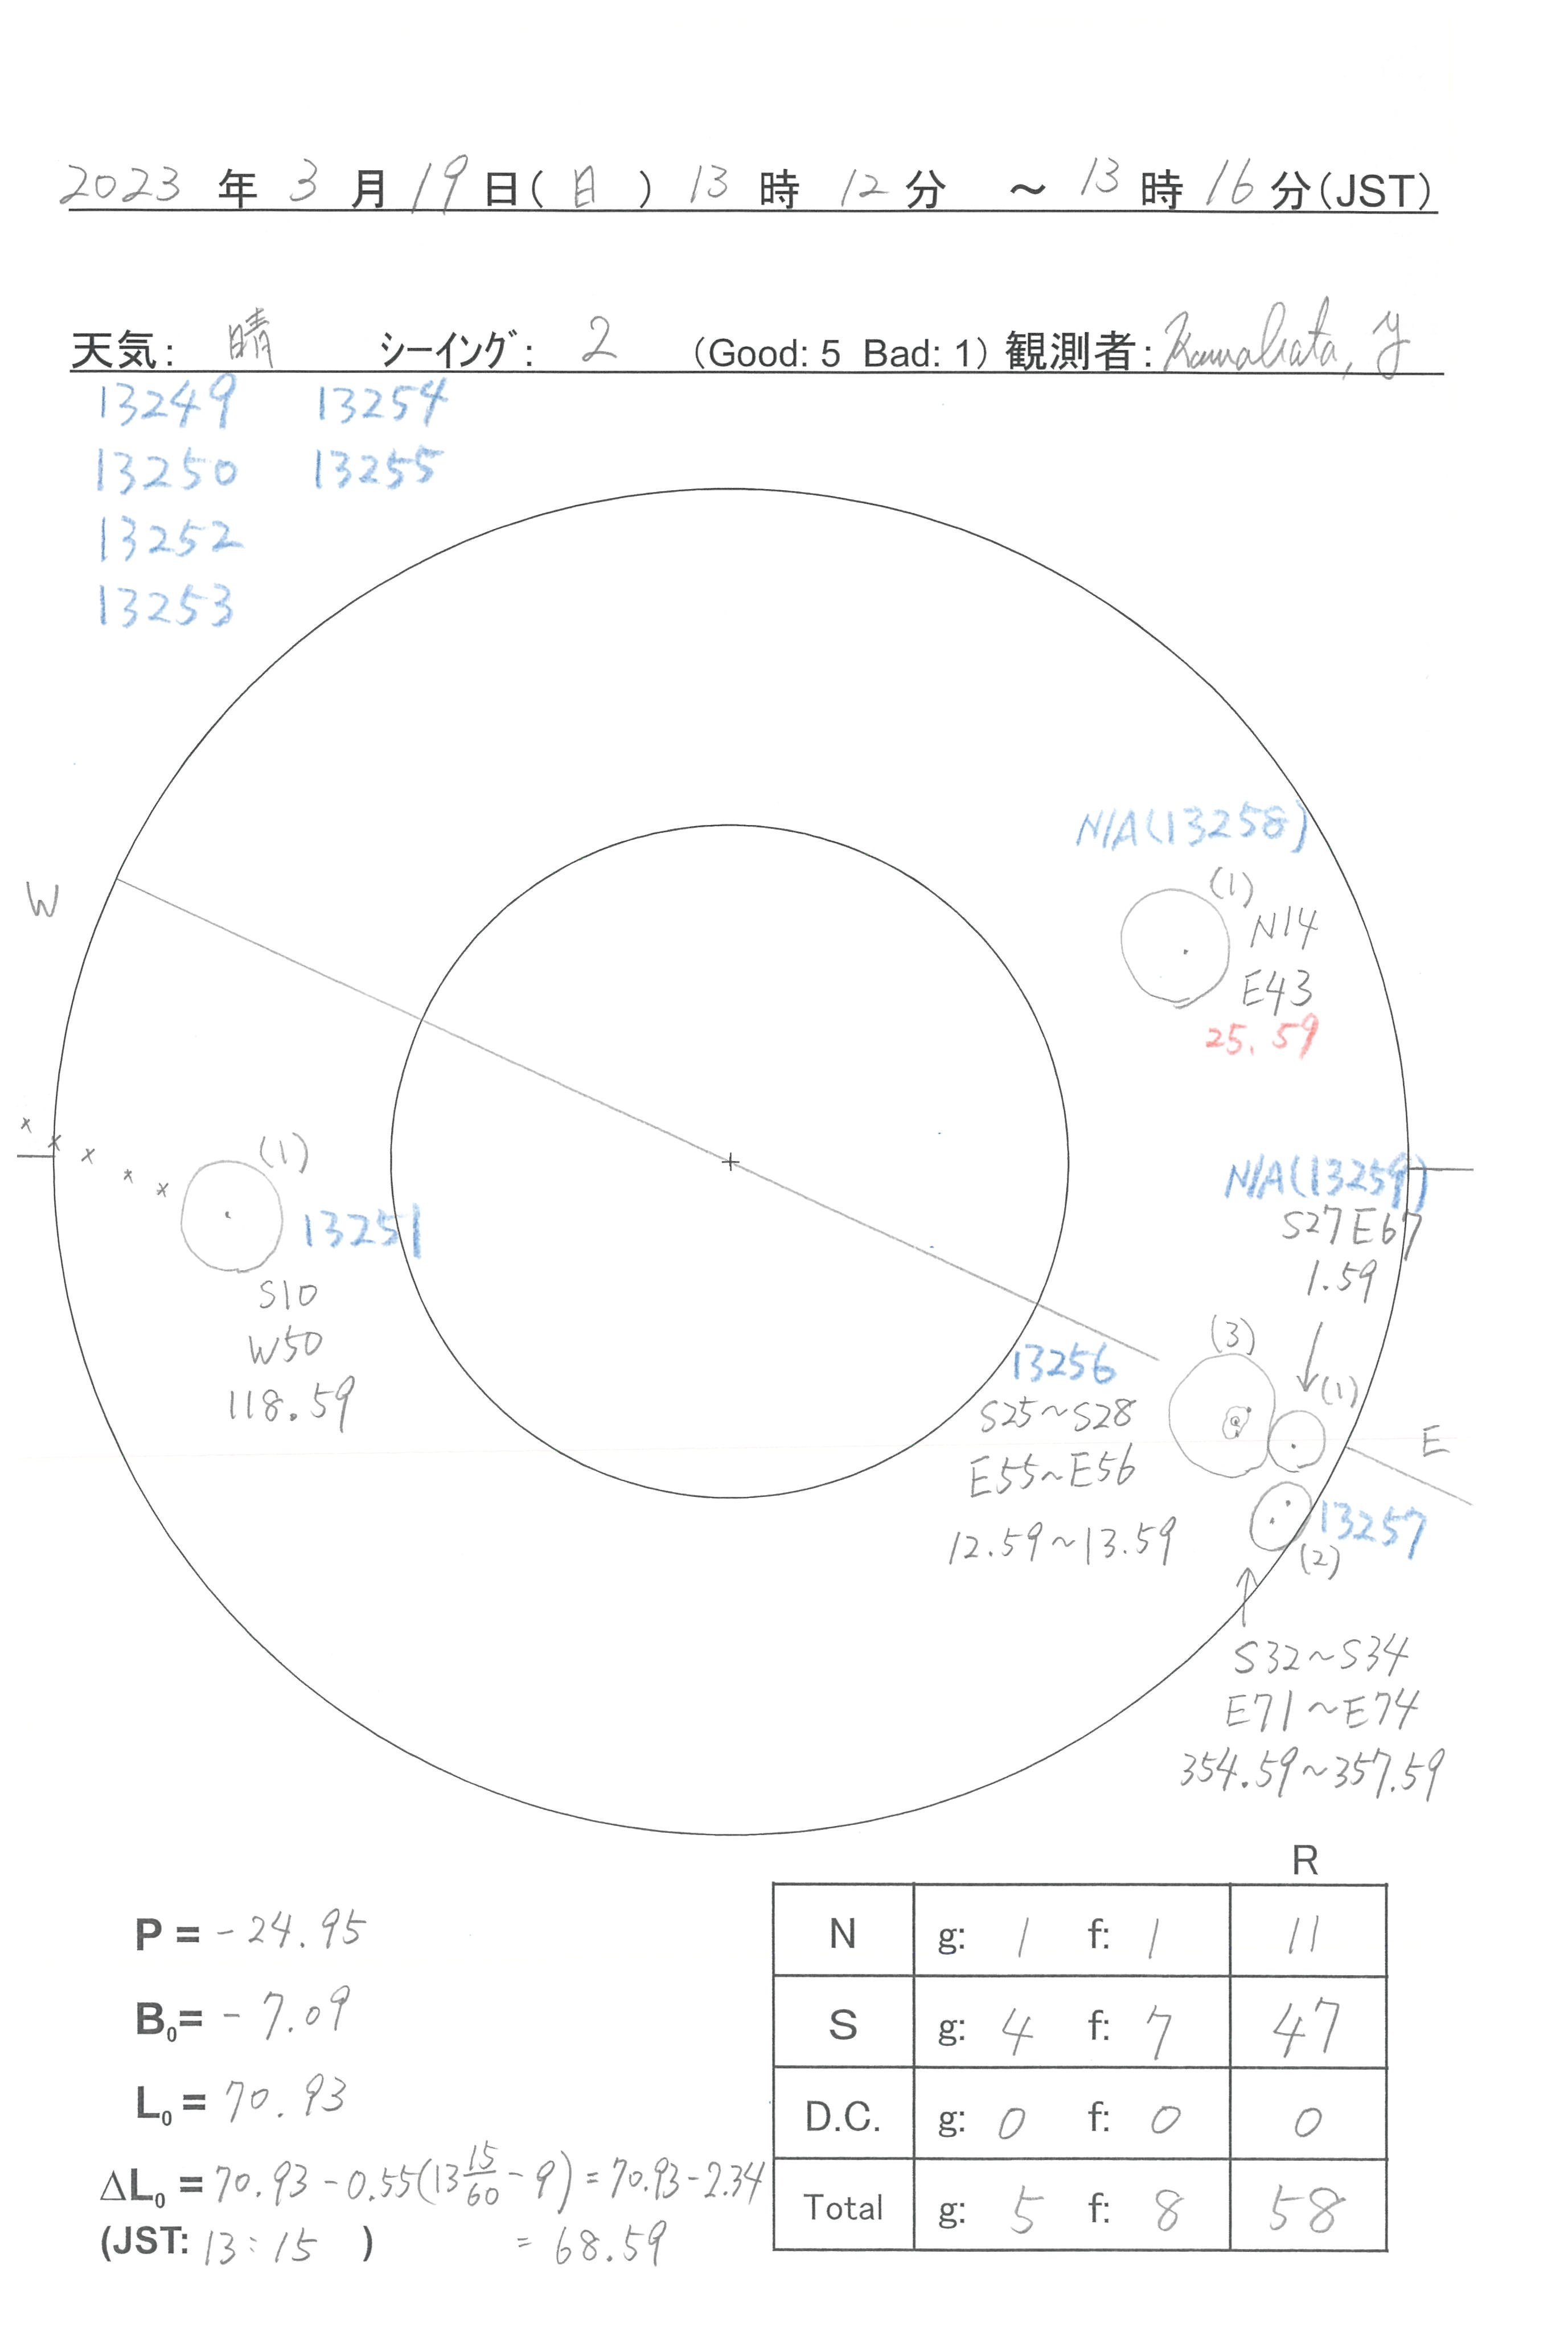 2023 年 3 月 19 日( 日 ) 13 時 12 分 ~ 13 時 16 分(JST)
天気: 晴 シーイング: 2 (Good: 5 Bad: 1) 観測者: Kawabata, Y
13249 13254
13250 13255
13252
13253
N/A(13258)
(1)
N14
E43
25.59
W
x x x x x
(1)
13251
S10
W50
118.59
N/A(13259)
S27E67
1.59
(1)
(3)
13256
S25~S28
E55~E56
12.59~13.59
E
13257
(2)
S32~S34
E71~E74
354.59~357.59
R
N g: 1 f: 1 11
S g: 4 f: 7 47
D.C. g: 0 f: 0 0
Total g: 5 f: 8 58
P = -24.95
B₀= -7.09
L₀ = 70.93
ΔL₀ = 70.93-0.55(13 15/60 -9)=70.93-2.34
(JST: 13:15 ) = 68.59